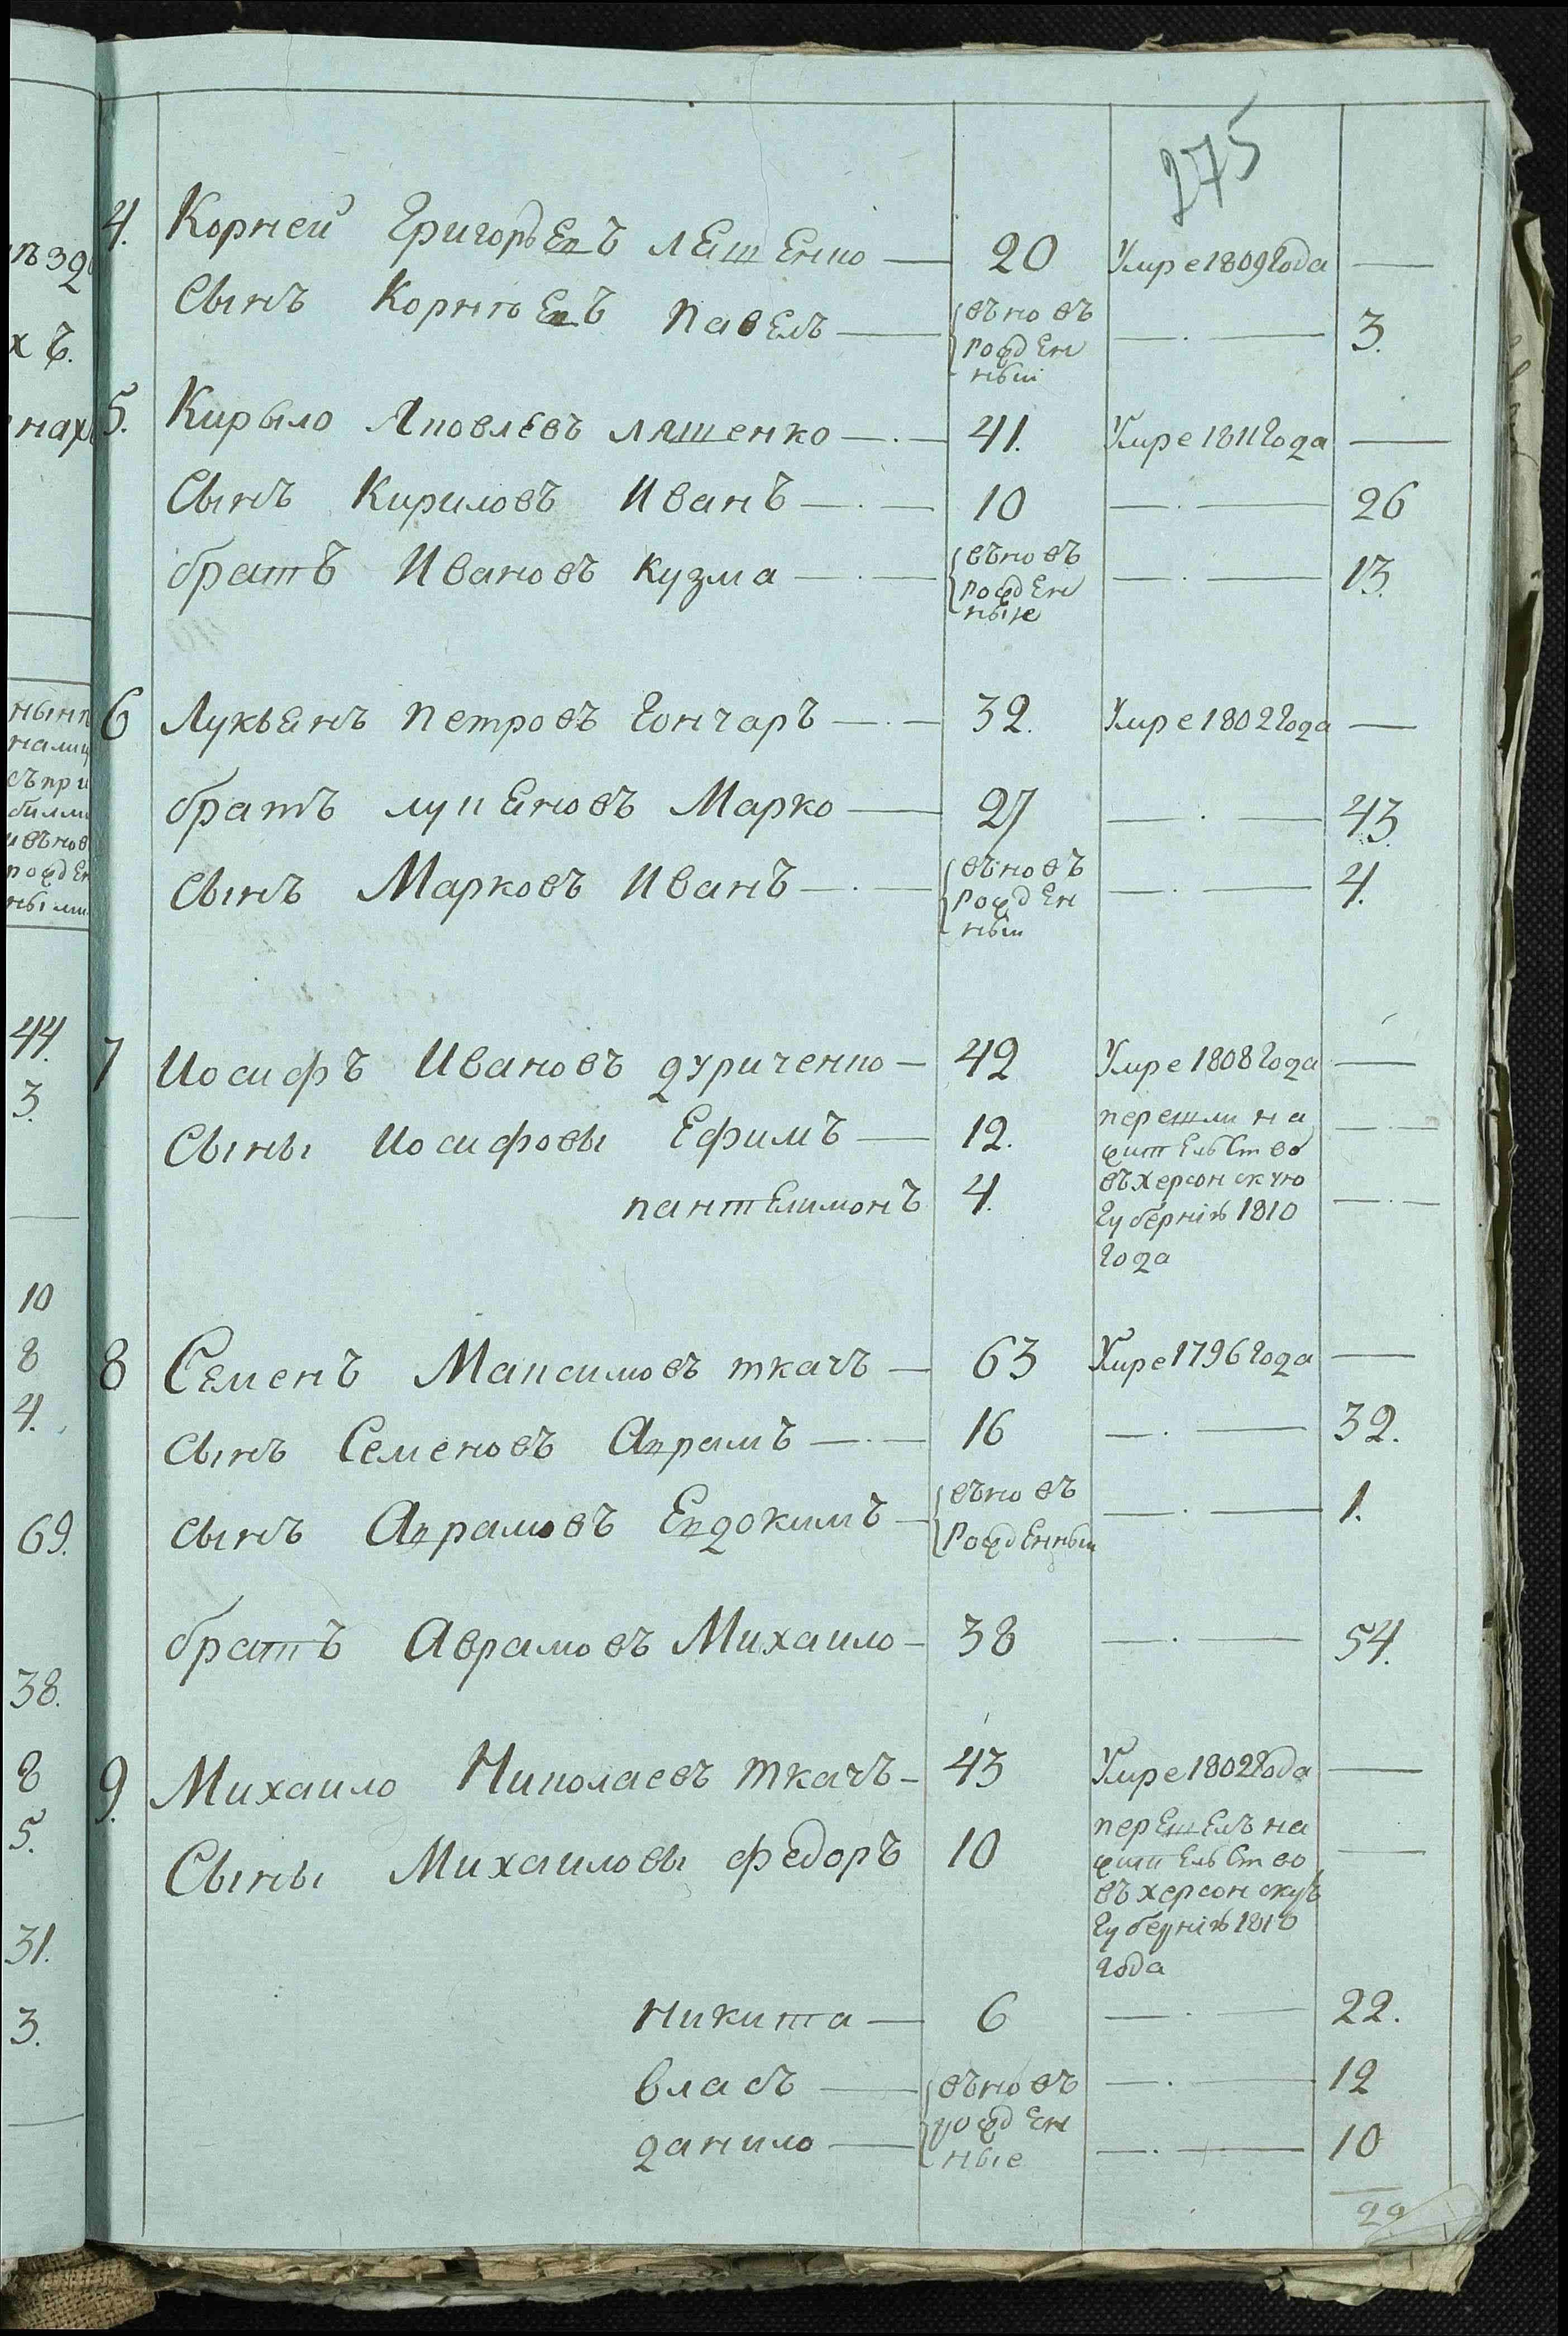 275
4. Корней Григорьевъ ляшенко — 20 Умре 1809 года —
Сынъ Корнѣевъ Павелъ — въновь рожденный — 3.
5. Кирыло Яковлевъ ляшенко — 41. Умре 1811 года —
Сынъ Кириловъ Иванъ — 10 — 26
братъ Ивановъ Кузма — въновь рожденные — 13.
6 Лукьянъ Петровъ Гончаръ — 32. Умре 1802 года —
братъ лукяновъ Марко — 27 — 43.
Сынъ Марковъ Иванъ — въновь рожденный — 4.
7 Иосифъ Ивановъ дуриченко — 42 Умре 1808 года —
Сыны Иосифовы Ефимъ — 12. перешли на жительство —
пантелимонъ 4. въ херсонскую губернію 1810 года —
8 Семенъ Максимовъ ткачъ — 63 Умре 1796 года —
Сынъ Семеновъ Аврамъ — 16 — 32.
сынъ Аврамовъ Евдокимъ — въновь рожденный — 1.
братъ Аврамовъ Михаило — 38 — 54.
9. Михаило Николаевъ ткачъ — 43 Умре 1802 года —
Сыны Михаиловы федоръ 10 перешелъ на жительство въ херсонскую губернію 1810 года —
Никита — 6 — 22.
власъ — въновь рожденные — 12
данило — — 10
44.
3.
10
8
4.
69.
38.
8
5.
31.
3.